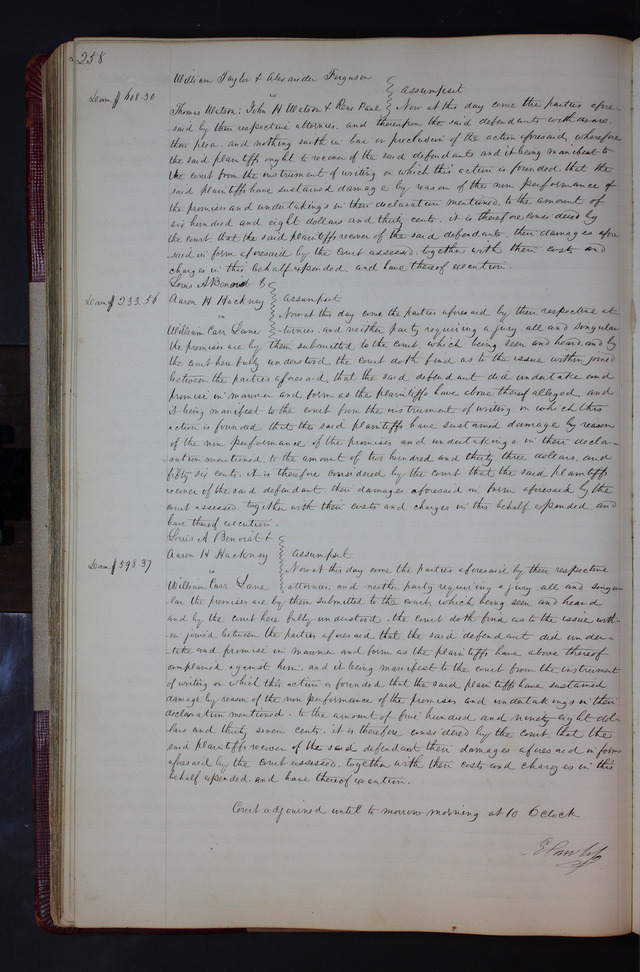 258
William Taylor & Alexander Ferguson
Dam $608.30
vs
assumpsit
Thomas Watson, John H Watson & Rene Paul
Now at this day come the parties afore-
said by their respective attornies, and thereupon the said defendants withdraw
their plea and nothing saith in bar or preclusion of the action aforesaid, wherefore
the said plaintiffs ought to recover of the said defendants and it being manifest to
the court from the instrument of writing on which this action is founded that the
said plaintiffs have sustained damage by reason of the non performance of
the promises and undertakings in their declaration mentioned, to the amount of
six hundred and eight dollars and thirty cents. it is therefore considered by
the court that the said plaintiffs recover of the said defendants their damages afore
said in form aforesaid by the court assessed, together with their costs and
charges in this behalf expended, and have thereof execution.
Louis A Benoist &
Dam $233.56
Aaron H Hackney
assumpsit
vs
Now at this day come the parties aforesaid by their respective at-
William Carr Lane
-tornies, and neither party requiring a jury, all and singular
the premises are by them submitted to the court, which being seen and heard, and by
the court here fully understood the court doth find as to the issue within joined
between the parties aforesaid, that the said defendant did undertake and
promise in manner and form as the plaintiffs have above thereof alleged, and
it being manifest to the court from the instrument of writing on which this
action is founded that the said plaintiffs have sustained damage by reason
of the non performance of the promises and undertakings in their decla-
ration mentioned, to the amount of two hundred and thirty three dollars, and
fifty six cents. it is therefore considered by the court that the said plaintiffs
recover of the said defendant, their damages aforesaid in form aforesaid by the
court assessed, together with their costs and charges in this behalf expended, and
have thereof execution.
Louis A Benoist &
Aaron H Hackney
assumpsit
Dam $598.37
vs
Now at this day come the parties aforesaid by their respective
William Carr Lane
attornies, and neither party requiring a jury, all and singu-
lar the premises are by them submitted to the court, which being seen and heard
and by the court here fully understood, the court doth find as to the issue with-
in joined between the parties aforesaid that the said defendant did under-
-take and promise in manner and form as the plaintiffs have above thereof
complained against him, and it being manifest to the court from the instrument
of writing on which this action is founded that the said plaintiffs have sustained
damage by reason of the non performance of the promises and undertakings in their
declaration mentioned, to the amount of five hundred and ninety eight dol-
lars and thirty seven cents. it is therefore considered by the court that the
said plaintiffs recover of the said defendant their damages aforesaid in form
aforesaid by the court assessed, together with their costs and charges in this
behalf expended, and have thereof execution.
Court adjourned until to morrow morning at 10 Oclock